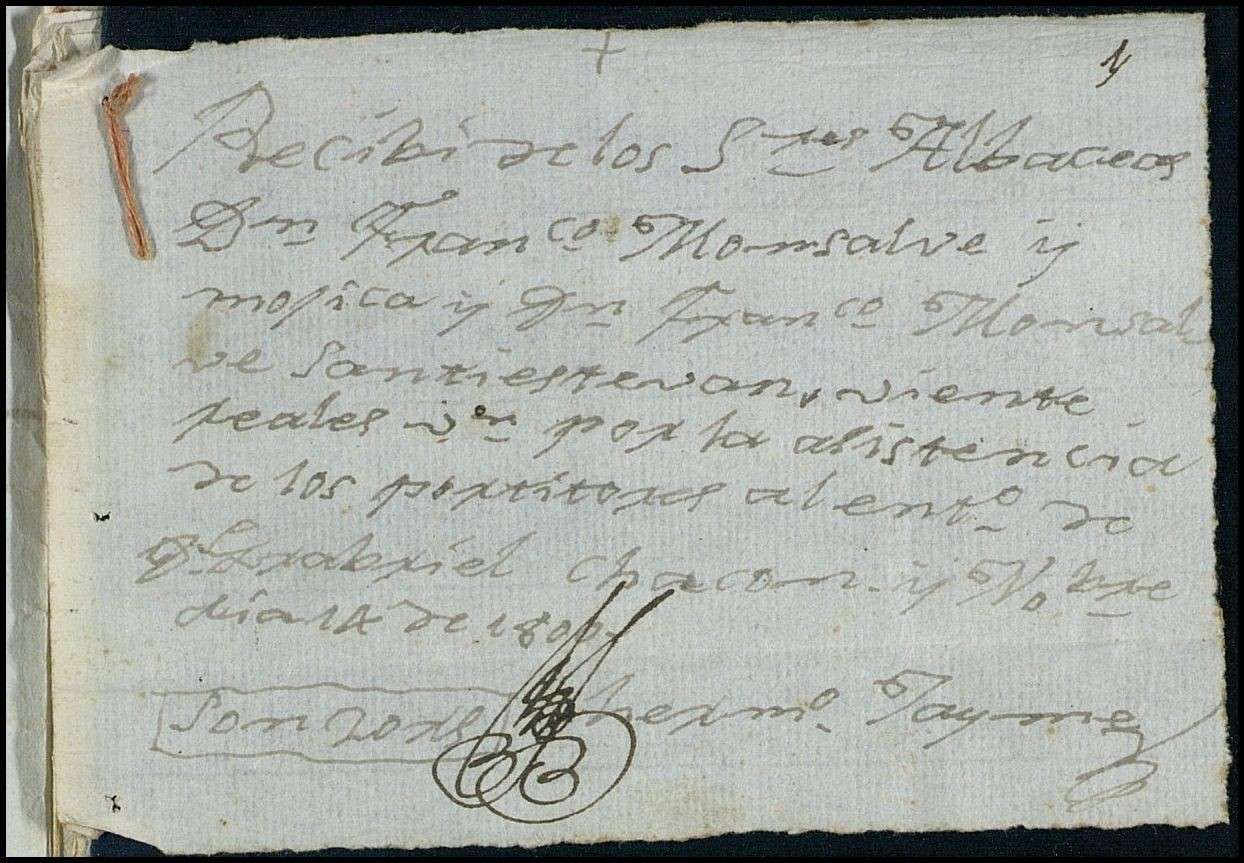 +
Recibi de los S.res Albaceas
Dn Franco Monsalve y
mojica y Dn Franco Monsal
ve Santiestevan, viente
reales vn por la asistencia
de los portitores al ento de
Dn Grabriel Chacon y Nobre
dia 14 de 1800.
Son 20 rs hermo Jayme